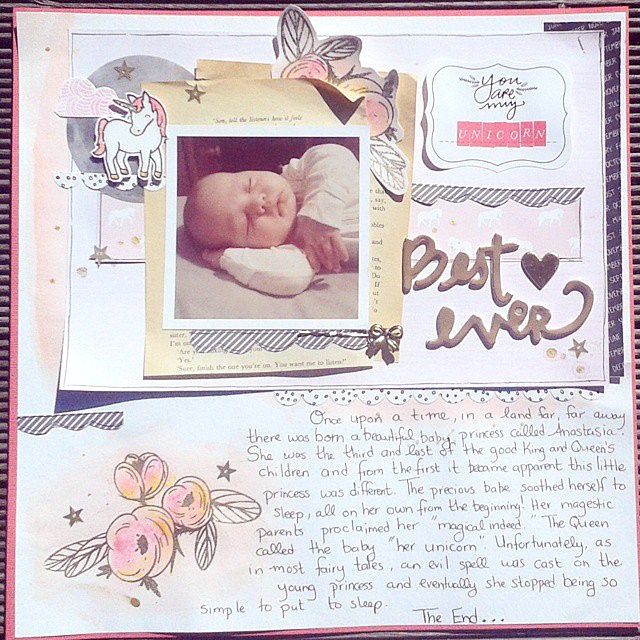 you
are
my
UNICORN
"Son, tell the listeners how it feels
Best
ever
sister.
'Yes.'
'Sure, finish the one you're on. You want me to listen?'
Once upon a time, in a land far, far away
there was born a beautiful baby princess called Anastasia.
She was the third and last of the good King and Queen's
children and from the first it became apparent this little
princess was different. The precious babe soothed herself to
sleep, all on her own from the beginning! Her magestic
parents proclaimed her "magical indeed." The Queen
called the baby "her unicorn". Unfortunately, as
in most fairy tales, an evil spell was cast on the
young princess and eventually she stopped being so
simple to put to sleep.
The End...